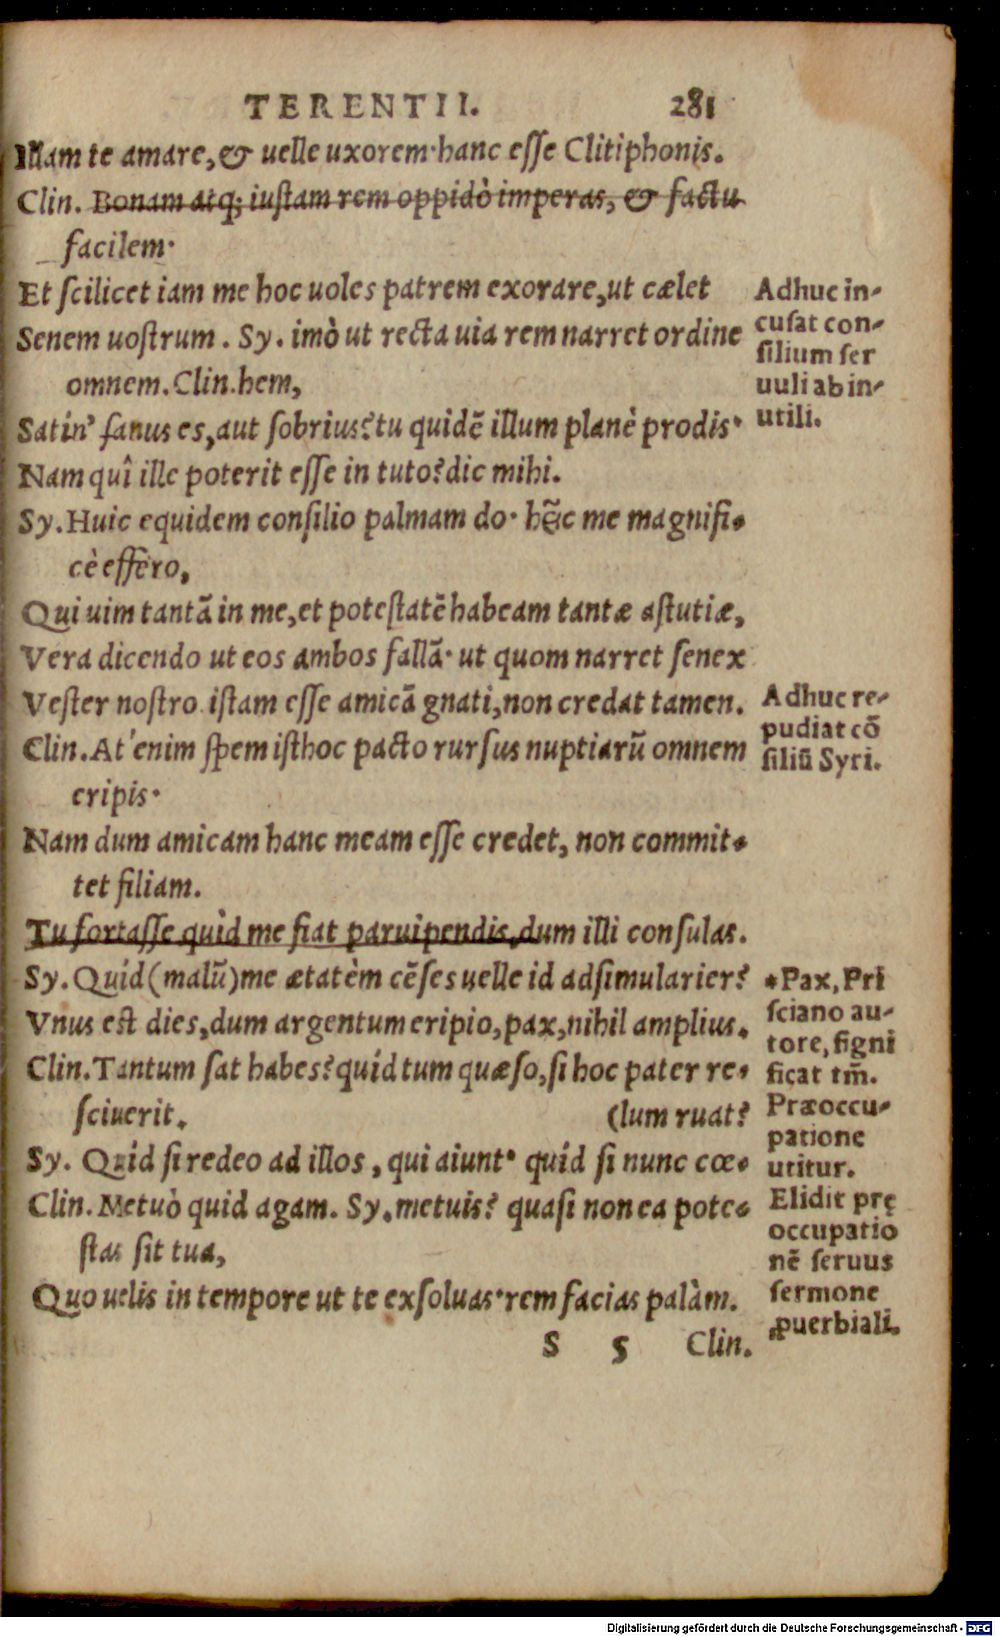 TERENTII. 281
Illam te amare, & uelle uxorem· hanc esse Clitiphonis.
Clin. Bonam atq; iustam rem oppidò imperas, & factu
facilem·
Et scilicet iam me hoc uoles patrem exorare, ut cælet
Senem uostrum. Sy. imò ut recta uia rem narret ordine
omnem. Clin. hem,
Satin' sanus es, aut sobrius? tu quidẽ illum planè prodis·
Nam quî ille poterit esse in tuto? dic mihi.
Sy. Huic equidem consilio palmam do· hẽc me magnifi-
cè effero,
Qui uim tantã in me, et potestatẽ habeam tantæ astutiæ,
Vera dicendo ut eos ambos fallã· ut quom narret senex
Vester nostro istam esse amicã gnati, non credat tamen.
Clin. At enim spem isthoc pacto rursus nuptiarũ omnem
eripis·
Nam dum amicam hanc meam esse credet, non commit-
tet filiam.
Tu fortasse quid me fiat paruipendis, dum illi consulas.
Sy. Quid (malũ) me ætatèm cẽses uelle id adsimularier?
Vnus est dies, dum argentum eripio, pax, nihil amplius.
Clin. Tantum sat habes? quid tum quæso, si hoc pater re-
sciuerit. (lum ruat?
Sy. Quid si redeo ad illos, qui aiunt· quid si nunc cœ-
Clin. Metuò quid agam. Sy. metuis? quasi non ea pote-
stas sit tua,
Quo uelis in tempore ut te exsoluas· rem facias palàm.
S 5 Clin.
Adhuc in-
cusat con-
silium ser
uuli ab in-
utili.
Adhuc re-
pudiat cõ
siliũ Syri.
*Pax, Pri
sciano au-
tore, signi
ficat tm̃.
Præoccu-
patione
utitur.
Elidit prę
occupatio
nẽ seruus
sermone
ꝓuerbiali.
Digitalisierung gefördert durch die Deutsche Forschungsgemeinschaft - DFG